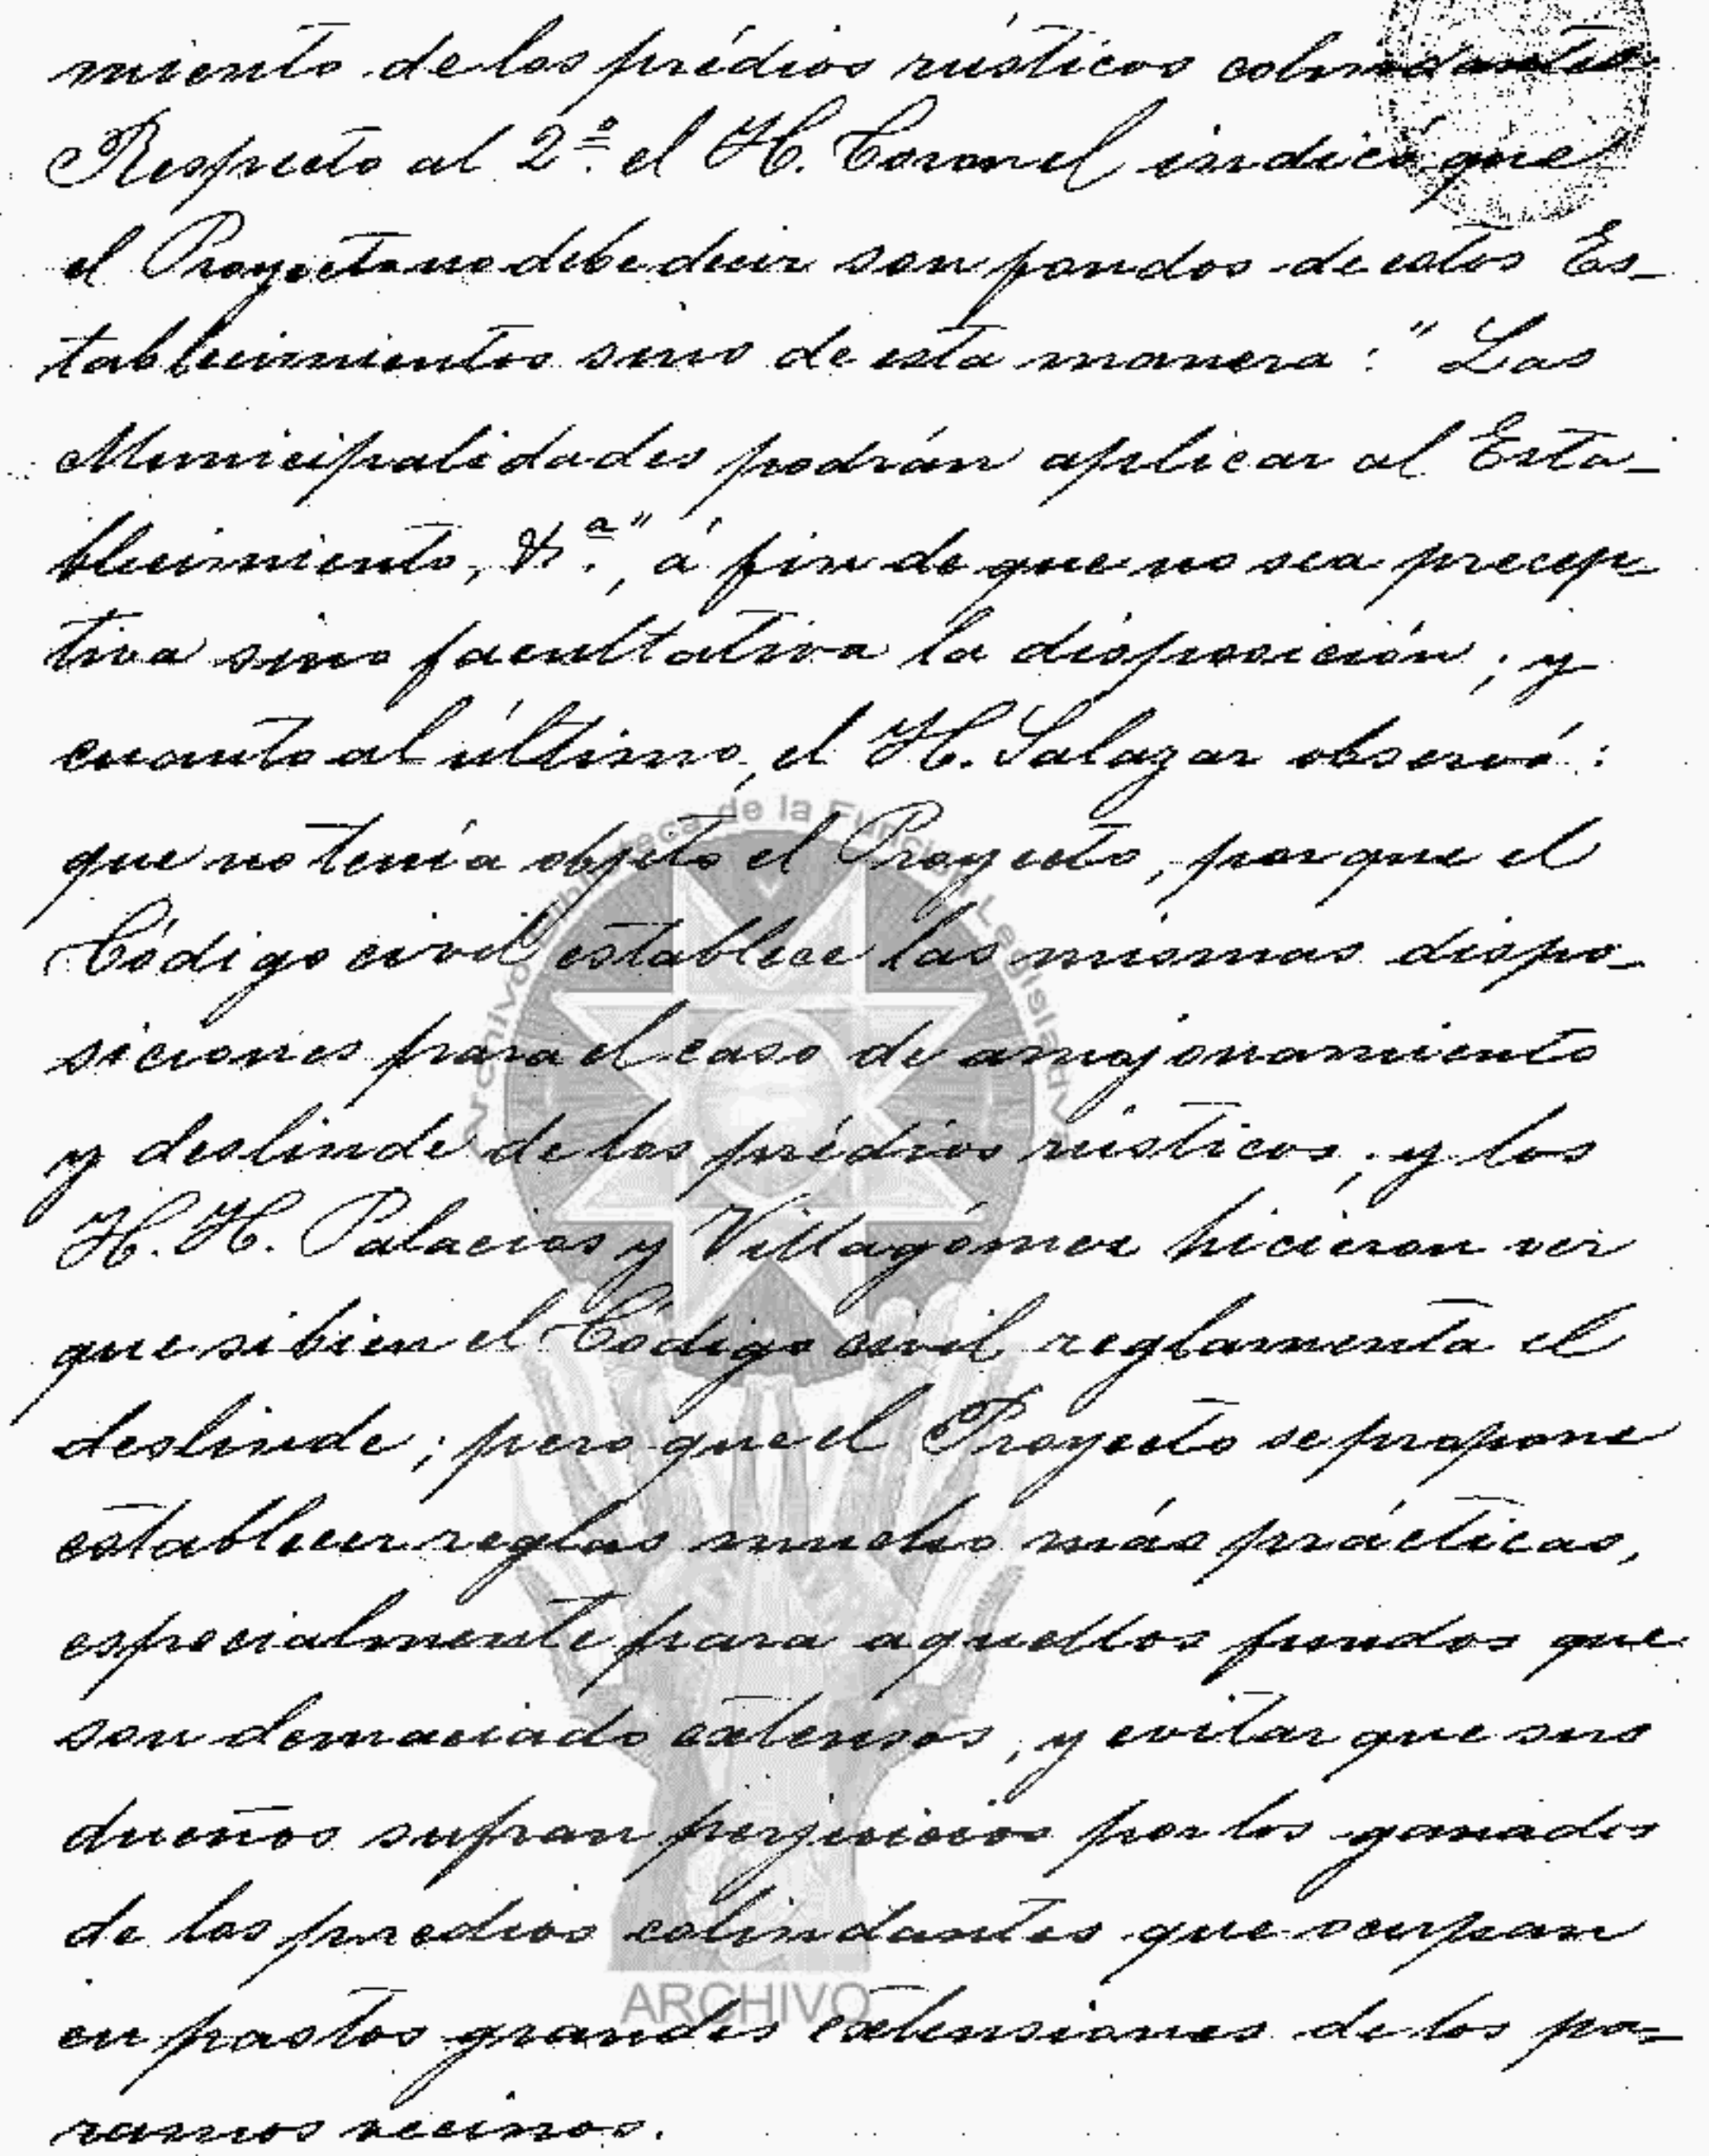 miento de los prédios rústicos colindantes
Respecto al 2º. el H. Coronel indicó que
el Proyecto no debe decir son fondos de estos Es-
tablecimientos sino de esta manera: "Las
Municipalidades podrán aplicar al Esta-
blecimiento, &.ª", á fin de que no sea precep
tiva sino facultativa la disposición; y
cuanto al último, el H. Salazar observó:
que no tenía objeto el Proyecto, porque el
Código civil establece las mismas dispo-
siciones para el caso de amojonamiento
y deslinde de los prédios rústicos; y los
H. H. Palacios y Villagómez hicieron ver
que si bien el Código civil reglamenta el
deslinde; pero que el Proyecto se propone
establecer reglas mucho más prácticas,
especialmente para aquellos fundos que
son demaciado extensos, y evitar que sus
dueños sufran perjuicios por los ganados
de los predios colindantes que ocupan
en pastos grandes extensiones de los pá-
ramos vecinos.
Archivo Biblioteca de la Función Legislativa
ARCHIVO